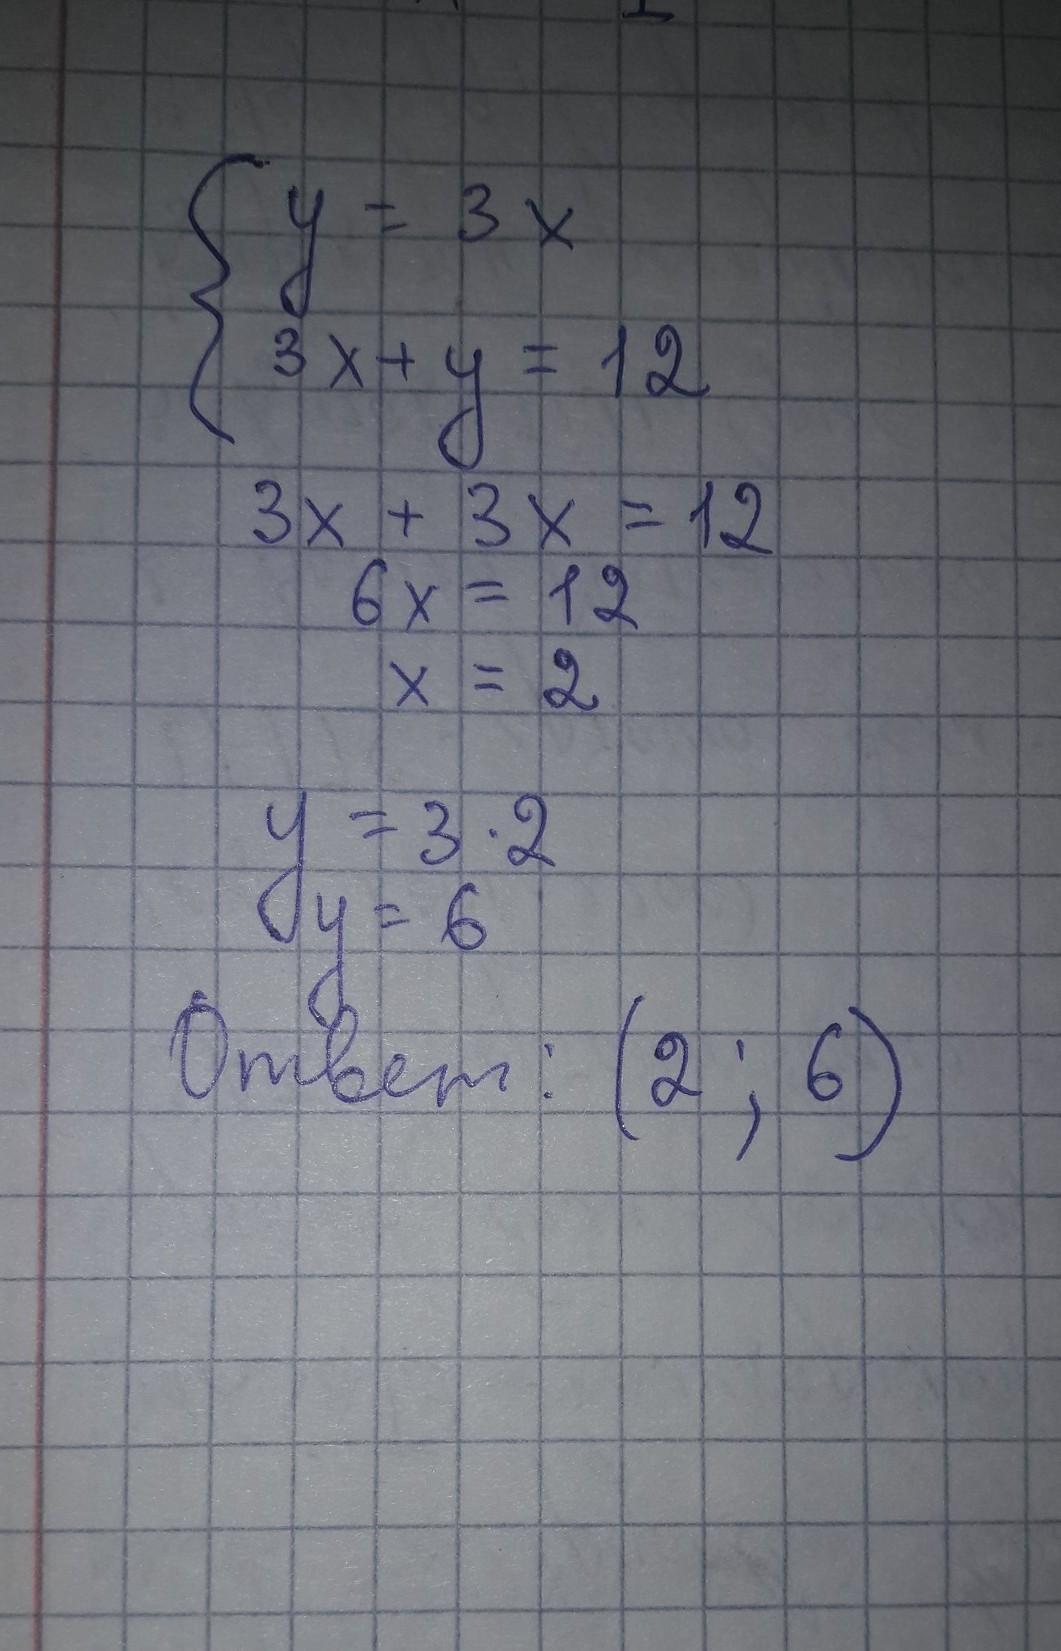 y = 3x
3x + y = 12
3x + 3x = 12
6x = 12
x = 2
y = 3 · 2
y = 6
Ответ: (2 ; 6)